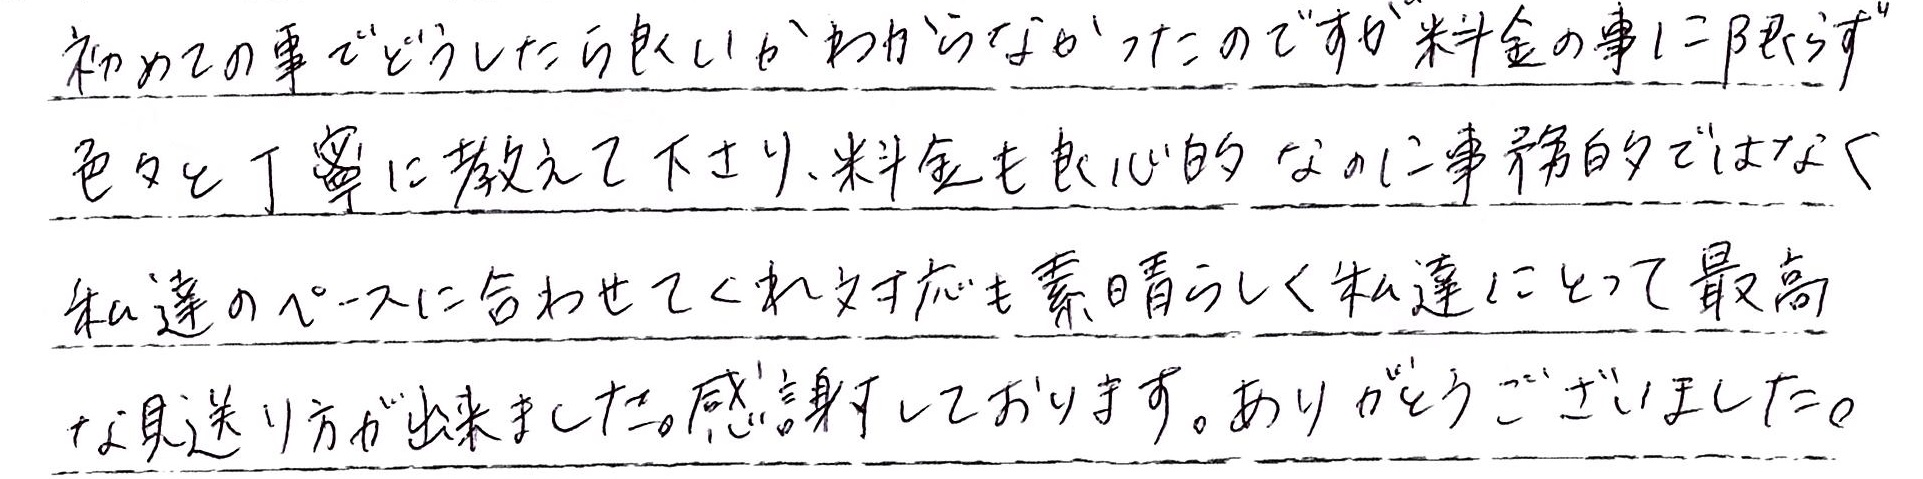 初めての事でどうしたら良いかわからなかったのですが料金の事に限らず
色々と丁寧に教えて下さり、料金も良心的なのに事務的ではなく
私達のペースに合わせてくれ対応も素晴らしく私達にとって最高
な見送り方が出来ました。感謝しております。ありがとうございました。